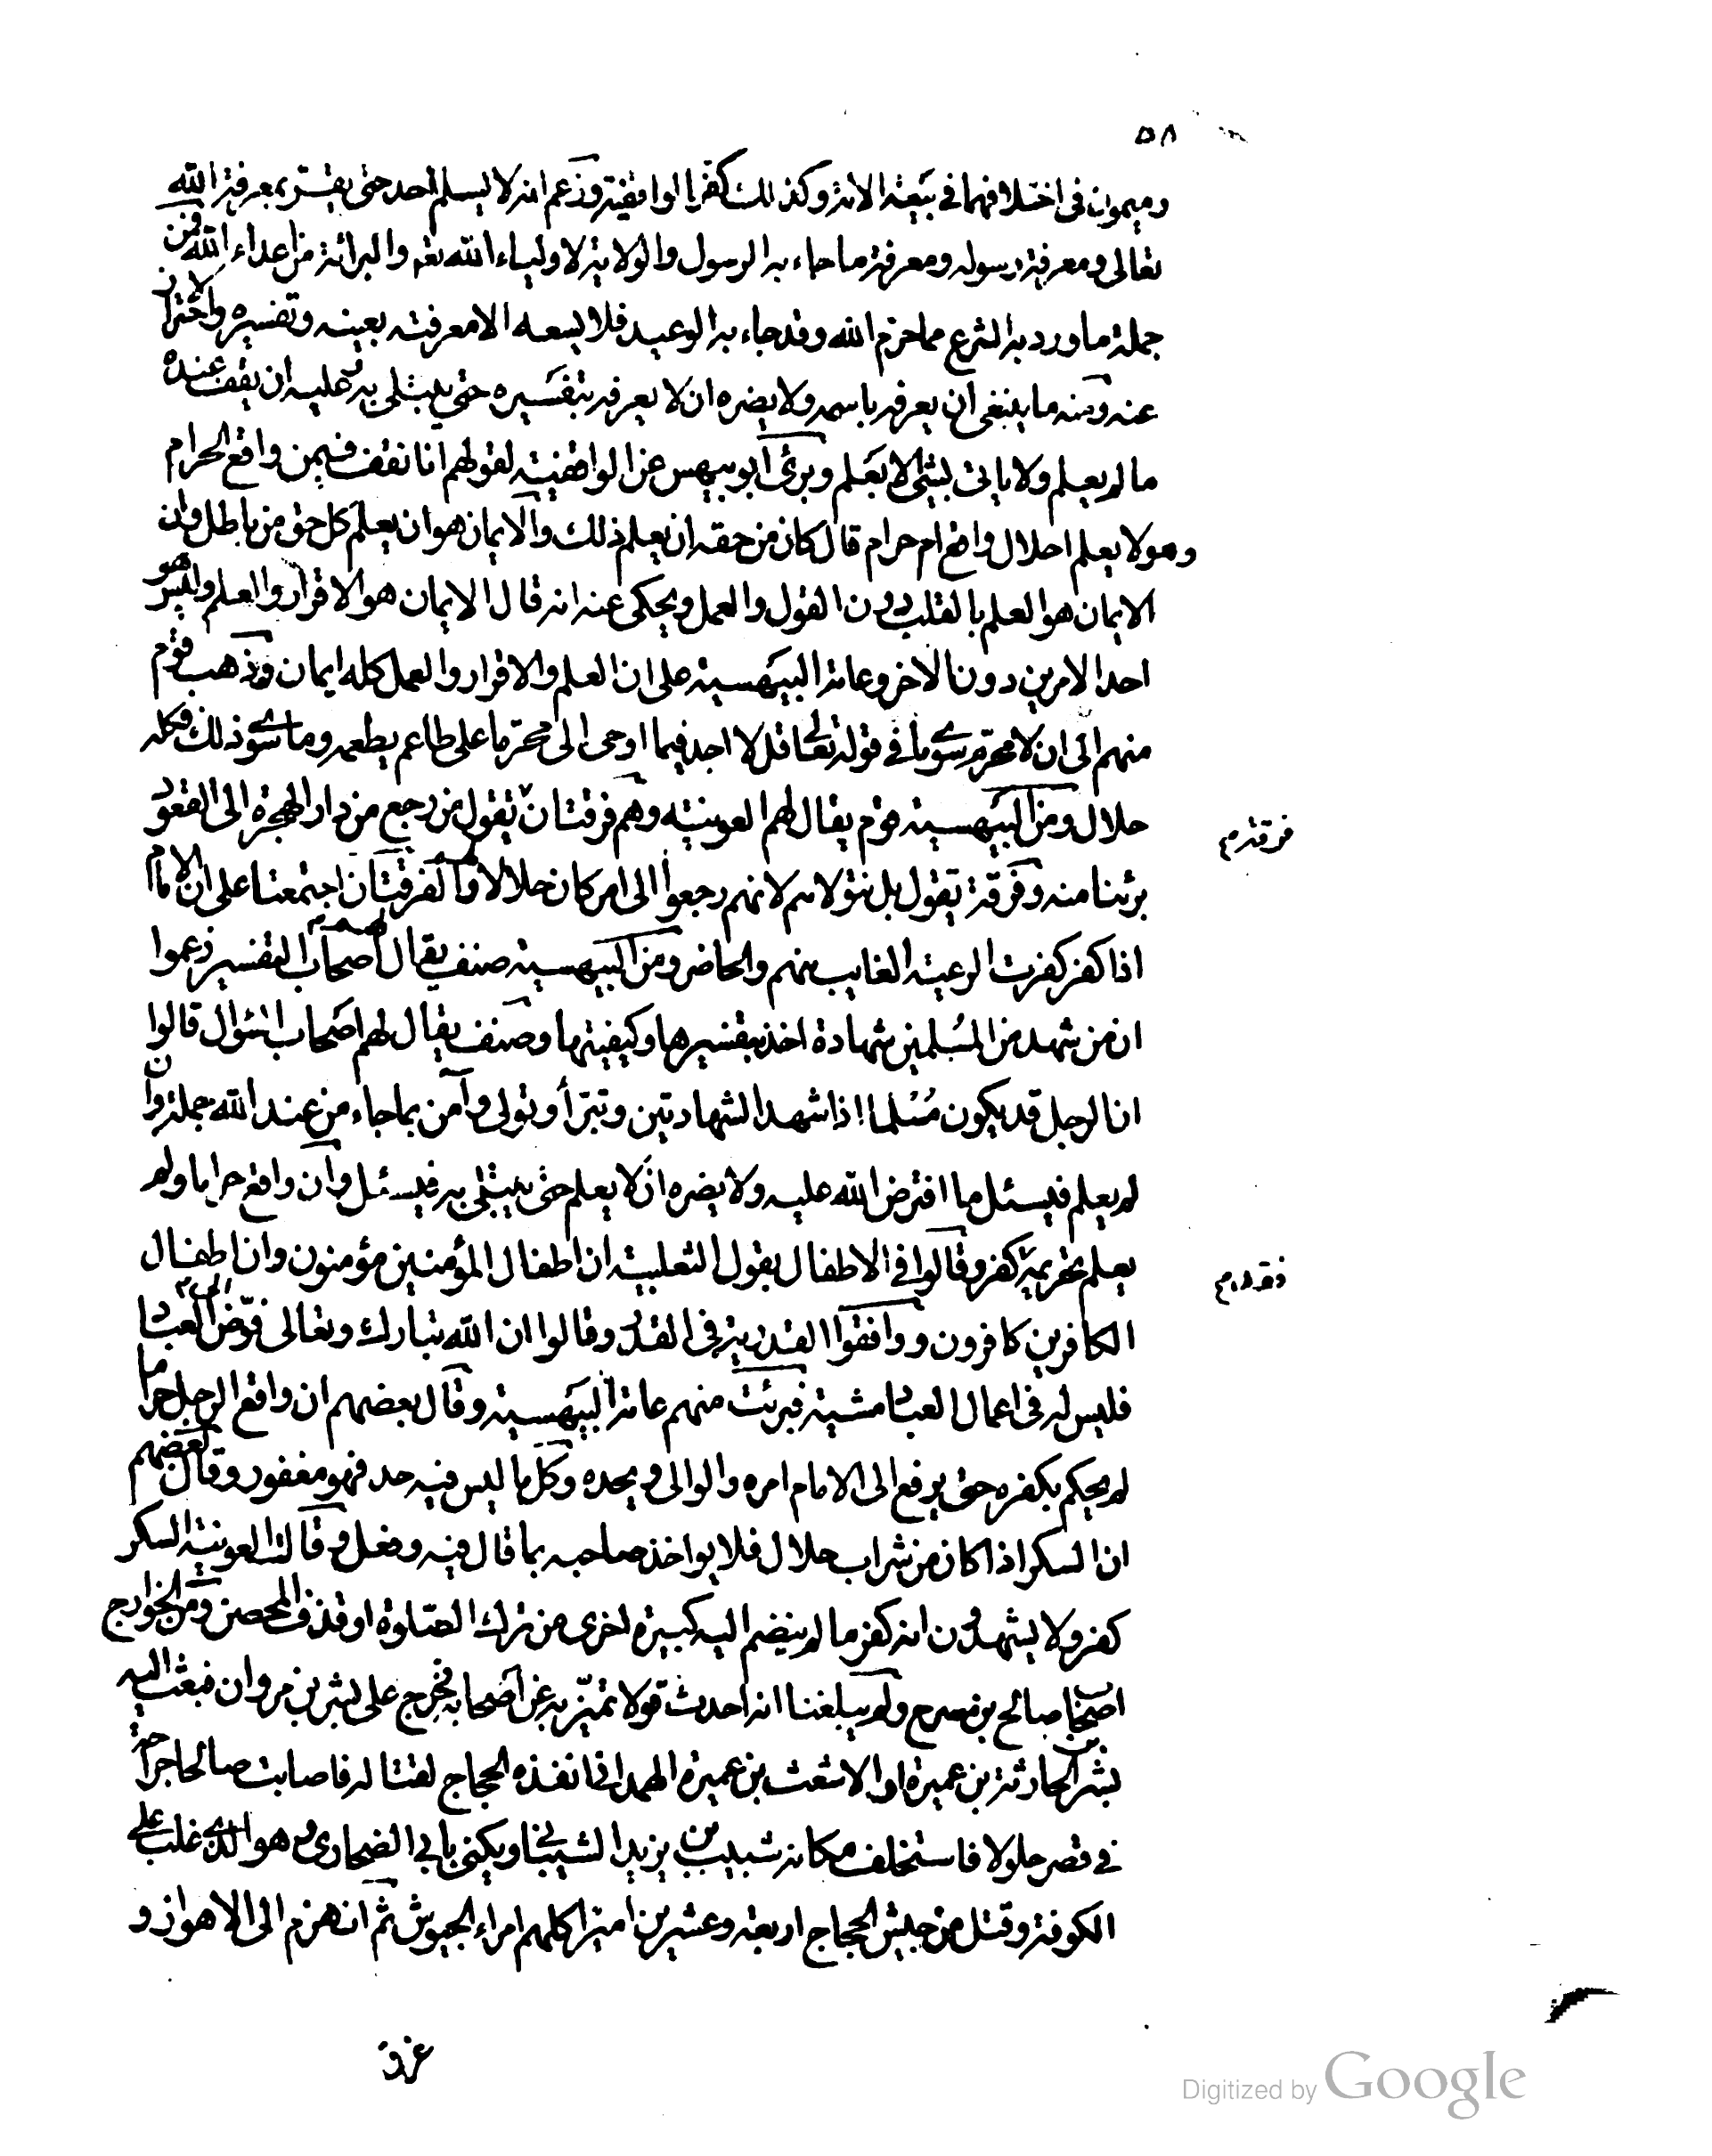 ٥٨
وميمون في اختلافهما في بيعة الامة وكذلك كفر بالواقفية وزعم انه لا يسلم احد حتى يقر بمعرفة الله
تعالى ومعرفة رسوله ومعرفة ما جاء به الرسول والولاية لاولياء الله تعم والبرائة من اعداء الله فمن
جملة ما ورد به الشرع مما حرم الله وقد جاء به الوعيد فلا يسعه الا معرفته بعينه وتفسيره والاحتراز
عنه ومنه ما ينبغي ان يعرفه باسمه ولا يضره ان لا يعرفه بتفسيره حتى يبتلى به وعليه ان يقف عنده
ما لم يعلم ولا ياتي بشئ الا بعلم وبرئ ابو بيهس عن الواقفية لقولهم انا نقف فيمن واقع الحرام
وهو لا يعلم احلال واقع ام حرام قال كان من حقه ان يعلم ذلك والايمان هو ان يعلم كل حق من باطل وان
الايمان هو العلم بالقلب دون القول والعمل ويحكى عنه انه قال الايمان هو الاقرار والعلم وليس هو
احد الامرين دون الاخر وعامة البيهسية على ان العلم والاقرار والعمل كله ايمان وذهب قوم
منهم الى ان لا محرم سوى ما في قوله تعالى قل لا اجد فيما اوحى الى محرما على طاعم يطعمه وما سوى ذلك فكله
حلال ومن البيهسية قوم يقال لهم العونية وهم فرقتان تقول من رجع من دار الهجرة الى القعود
فرقة م
برئنا منه وفرقة تقول بل نتولاهم لانهم رجعوا الى امر كان حلالا والفرقتان اجتمعتا على ان الامام
اذا كفر كفرت الرعية الغايب منهم والحاضر ومن البيهسية صنف يقال لهم اصحاب التفسير زعموا
ان من شهد من المسلمين شهادة اخذ بتفسيرها وكيفيتها وصنف يقال لهم اصحاب السؤال قالوا
ان الرجل قد يكون مسلما اذا شهد الشهادتين وتبرأ وتولى وآمن بما جاء من عند الله جملة وان
لم يعلم فيسئل ما افترض الله عليه ولا يضره ان لا يعلم حتى يبتلى به فيسئل وان واقع حراما ولم
يعلم تحريمه كفر وقالوا في الاطفال بقول الثعلبية ان اطفال المؤمنين مؤمنون وان اطفال
الكافرين كافرون ووافقوا القدرية في القدر وقالوا ان الله تبارك وتعالى فوض الى العباد
فليس له في اعمال العباد مشية فبرئت منهم عامة البيهسية وقال بعضهم ان واقع الرجل حراما
لم يحكم بكفره حتى يرفع الى الامام امره والوالى ويحده وكل ما ليس فيه حد فهو مغفور وقال بعضهم
ان السكر اذا كان من شراب حلال فلا يواخذ صاحبه بما قال فيه وفعل وقالت العونية السكر
كفر ولا يشهدون انه كفر ما لم ينضم اليه كبيرة اخرى من ترك الصلوة او قذف المحصن ومن الخوارج
اصحاب صالح بن مسرح ولم يبلغنا انه احدث قولا تميز به عن اصحابه فخرج على بشر بن مروان فبعث اليه
بشر الحارثة بن عميرة او الاشعث بن عميرة الهمداني انفذه الحجاج لقتاله فاصابت صالحا جراحة
في قصر جلولا فاستخلف مكانه شبيب بن يزيد الشيباني ويكنى بابي الصحارى وهو الذي غلب على
الكوفة وقتل من جيش الحجاج اربعة وعشرين اميرا كلهم امراء الجيوش ثم انهزم الى الاهواز و
غرق
Digitized by Google